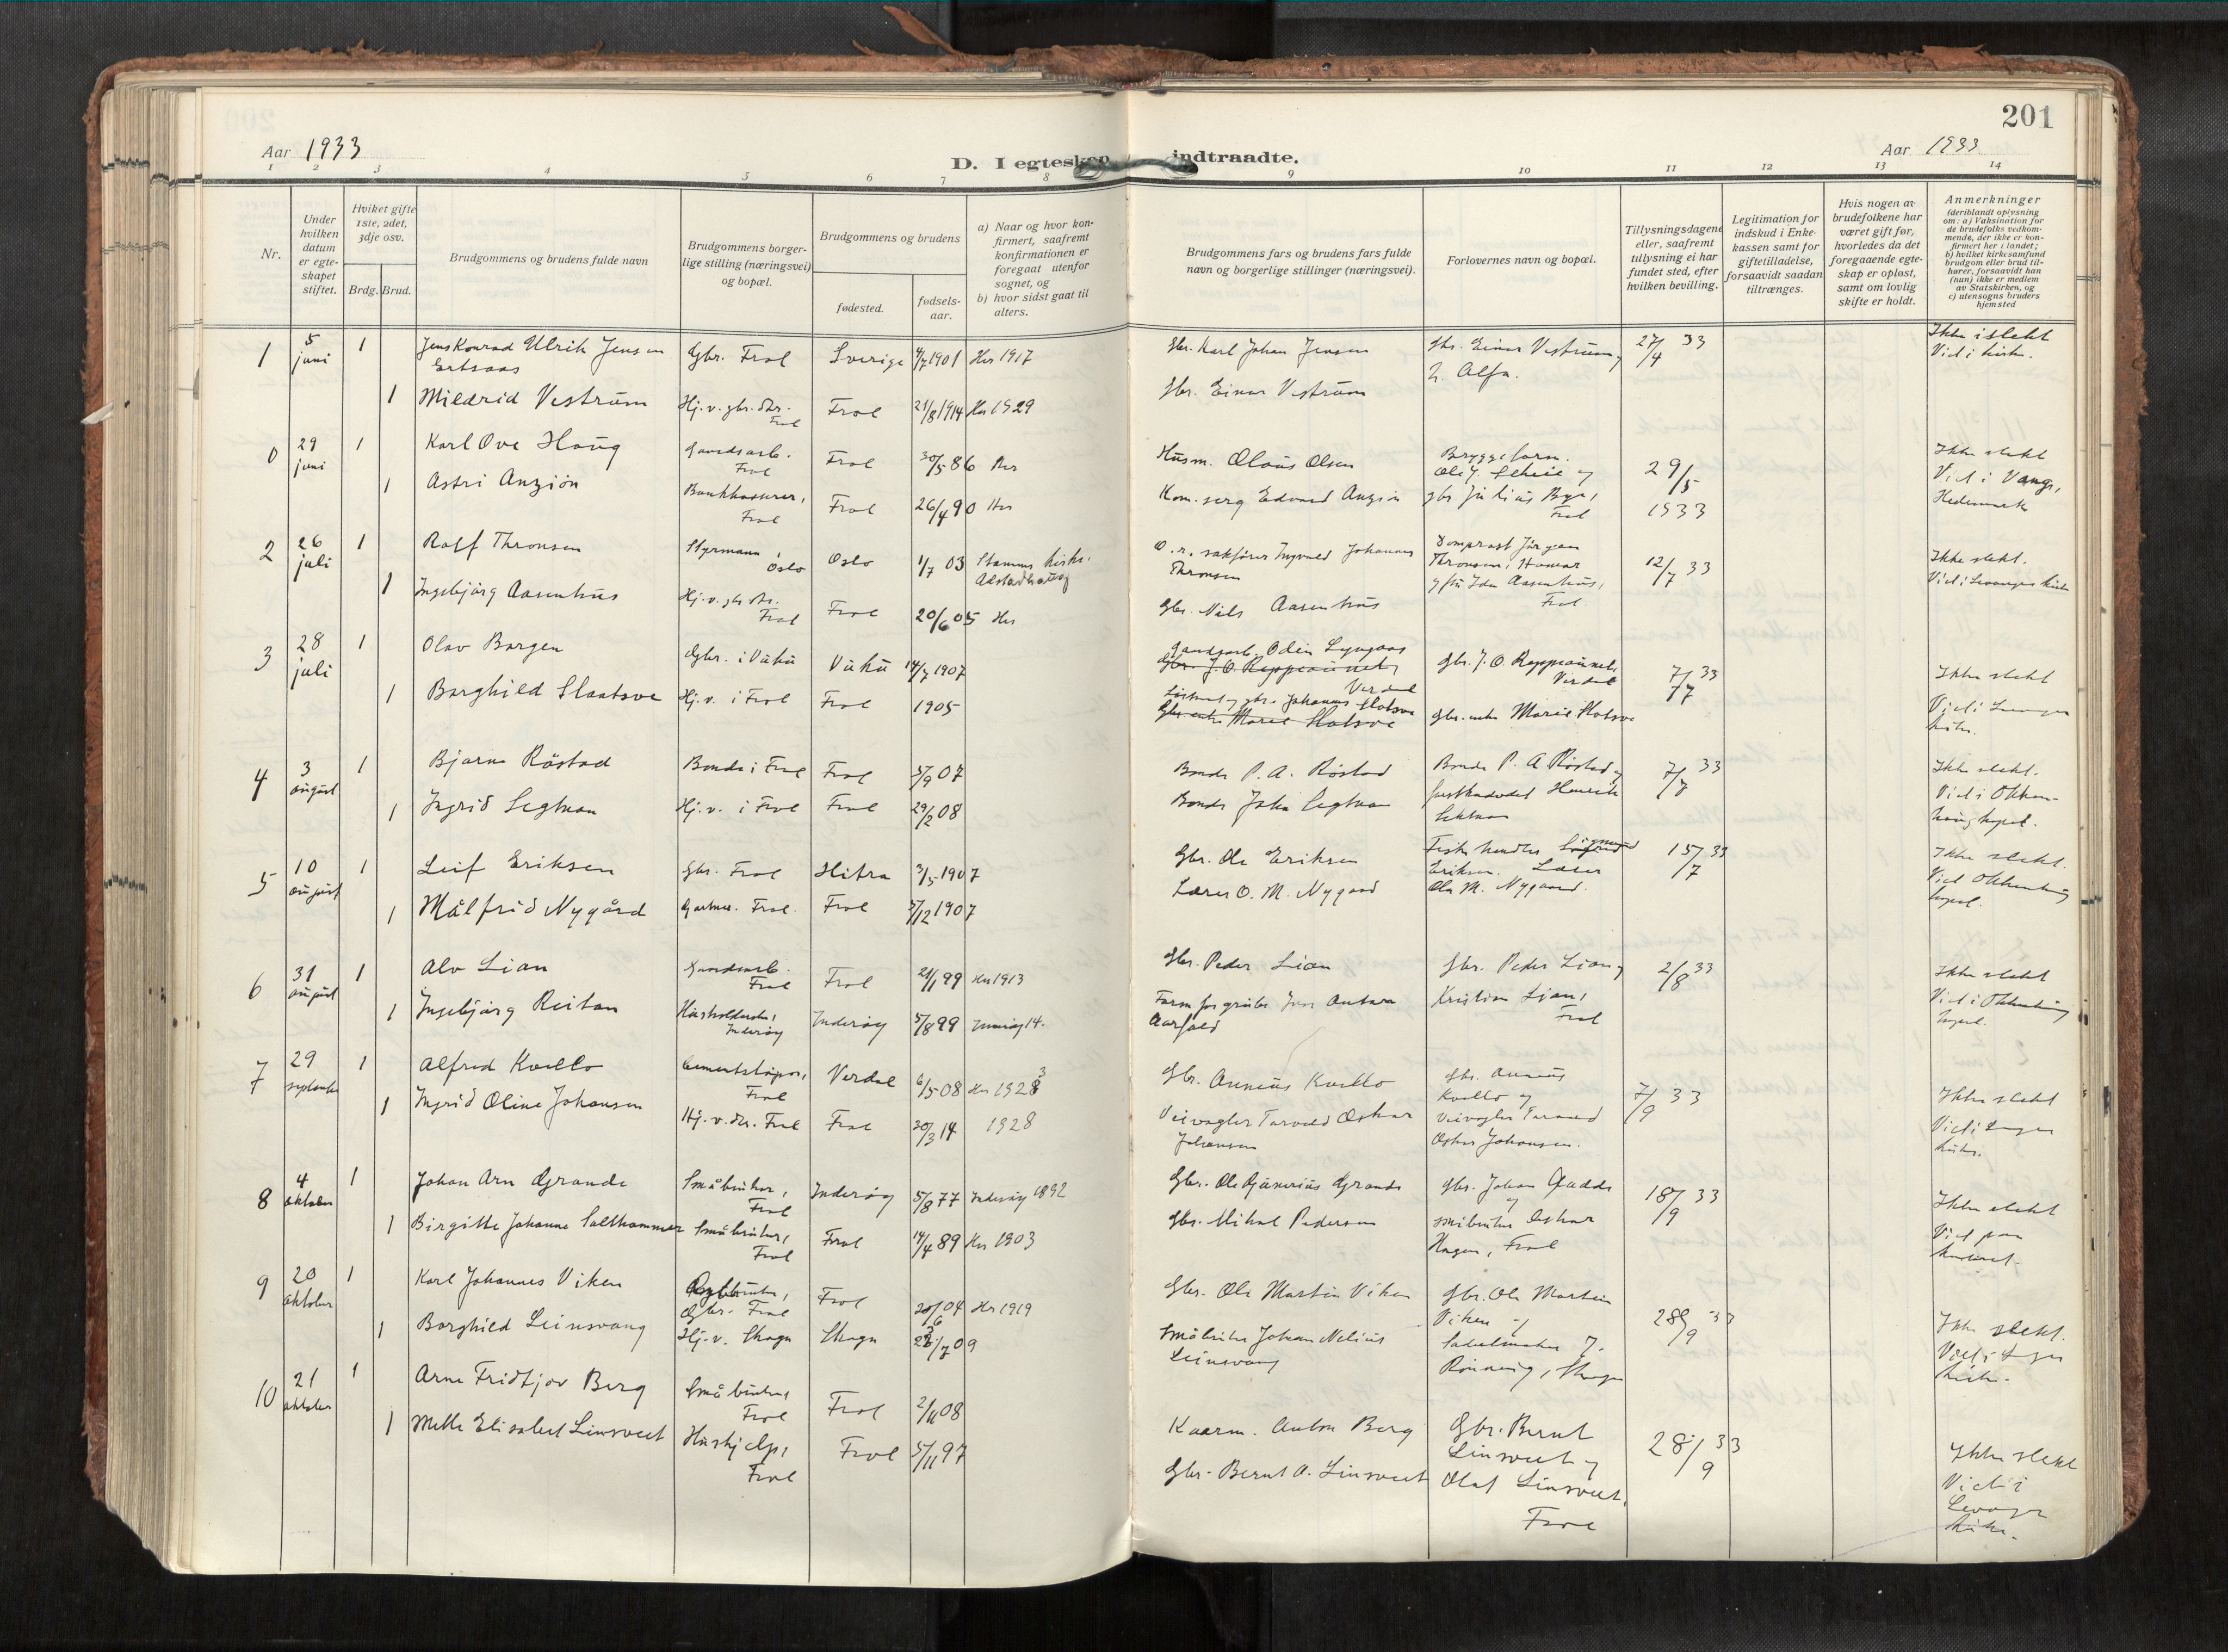 201
Aar 1933
D. I egteskap indtraadte.
Aar 1933
1 2 3 4 5 6 7 8 9 10 11 12 13 14
Nr.
Under hvilken datum er egteskapet stiftet.
Hviket gifte 1ste, 2det, 3dje osv.
Brdg. Brud.
Brudgommens og brudens fulde navn
Brudgommens borgerlige stilling (næringsvei) og bopæl.
Brudgommens og brudens
fødested.
fødselsaar.
a) Naar og hvor konfirmert, saafremt konfirmationen er foregaat utenfor sognet, og
b) hvor sidst gaat til alters.
Brudgommens fars og brudens fars fulde navn og borgerlige stillinger (næringsvei).
Forlovernes navn og bopæl.
Tillysningsdagene eller, saafremt tillysning ei har fundet sted, efter hvilken bevilling.
Legitimation for indskud i Enkekassen samt for giftetilladelse, forsaavidt saadan tiltrænges.
Hvis nogen av brudefolkene har været gift før, hvorledes da det foregaaende egteskap er opløst, samt om lovlig skifte er holdt.
Anmerkninger
(deriblandt oplysning om: a) Vaksination for de brudefolks vedkommende, der ikke er konfirmert her i landet;
b) hvilket kirkesamfund brudgom eller brud tilhører, forsaavidt han (hun) ikke er medlem av Statskirken, og
c) utensogns bruders hjemsted
1 5 juni 1 Jens Konrad Ulrik Jensen Ertsaas Gbr. Frol Sverige 4/7 1901 Her 1917 Gbr. Karl Johan Jensen Gbr. Einar Vestrum 27/4 33 Ikke i slekt
Vid i kirke.
1 Mildrid Vestrum Hj. v. gbr. dtr. Frol Frol 21/8 1914 Her 1929 Gbr. Einar Vestrum
0 29 juni 1 Karl Ove Haug Gaardsarb. Frol Frol 30/5 86 Her Husm. Olaus Olsen 29/5 1933 Ikke slekt
Vid i Vangs, Hedemark
1 Astri Anzjøn Frol Frol 26/4 90 Her Edvard Anzjøn gbr Julius Bye, Frol
2 26 juli 1 Rolf Thronsen Styrmann, Oslo Oslo 1/7 03 O. r. sakfører Ingvald Johannes Thronsen Domprost Jørgen Thronsen, Hamar 12/7 33 Ikke slekt.
Vid i Levanger kirke
1 Ingebjørg Aasenhus Hj. v. gbr dtr. Frol Frol 20/6 05 Her Gbr. Nils Aasenhus og fru Ida Aasenhus, Frol
3 28 juli 1 Olav Borgen Gbr. i Vuku Vuku 14/7 1907 Gaardsarb. Odin Lyngaas
Gbr. J. O. Reppeaunet, Verdal Gbr. J. O. Reppeaunet, Verdal 7/7 33 Ikke slekt
1 Borghild Slaatsve Hj. v. i Frol Frol 1905 gbr. Johannes Slotsve
Gbr. enke Marie Slotsve Gbr. enke Marie Slotsve
4 3 august 1 Bjarne Røstad Bonde i Frol Frol 5/9 07 Bonde P. A. Røstad Bonde P. A. Røstad og 7/7 33 Ikke slekt.
Vid i Okkenhaug kapel.
1 Ingrid Segtnan Hj. v. i Frol Frol 29/2 08 Bonde John Segtnan
5 10 august 1 Leif Eriksen Gbr. Frol Hitra 3/5 1907 Gbr. Ole Eriksen Fiskehandler Sigmund Eriksen. Lærer Ole M. Nygaard. 15/7 33 Ikke slekt.
Vid Okkenhaug kapel.
1 Målfrid Nygård Frol. Frol 5/12 1907 Lærer O. M. Nygaard
6 31 august 1 Alv Lian Gaardsarb. Frol Frol 21/1 99 Her 1913 Gbr. Peder Lian Gbr. Peder Lian og Kristian Lian, Frol 2/8 33 Ikke slekt
Vid i Okkenhaug kapel.
1 Ingebjørg Reitan Husholderske, Inderøy Inderøy 5/8 99 Inderøy 14.
7 29 september 1 Alfred Kvello Cementstøper, Frol Verdal 6/5 08 Her 1923 Gbr. Annæus Kvello Gbr. Annæus Kvello og 7/9 33 Ikke slekt
1 Ingrid Oline Johansen Hj. v. dtr. Frol Frol 20/3 14 1928 Veivogter Torvald Oskar Johansen Veivogter Torvald Oskar Johansen.
8 4 oktober 1 Johan Arn Grande Småbruker, Frol Inderøy 5/8 77 Inderøy 1892 Gbr. Ole Gjæverius Grande Gbr. Johan Gadde og småbruker Oskar Hagen, Frol 18/9 33 Ikke slekt
Vid paa kontoret.
1 Birgitte Johanne Salthammer Småbruker, Frol Frol 14/4 89 Her 1903 Gbr. Mikal Pedersen
9 20 oktober 1 Karl Johannes Viken Gbr. Frol Frol 20/6 04 Her 1919 Gbr. Ole Martin Viken Gbr. Ole Martin Viken og 28/9 33 Ikke slekt.
1 Borghild Leinsvang Hj. v. Skogn Skogn 09 Småbruker Johan Nelius Leinsvang Sadelmaker J. Rønning, Skogn
10 21 oktober 1 Arne Fridtjov Berg Småbruker, Frol Frol 2/11 08 Anton Berg Gbr. Bernt Linsveet og Olaf Linsveet, Frol 28/9 33 Ikke slekt
Vid i Levanger kirke.
1 Mette Elisabet Linsveet Hushjelp, Frol Frol 5/11 97 Gbr. Bernt A. Linsveet